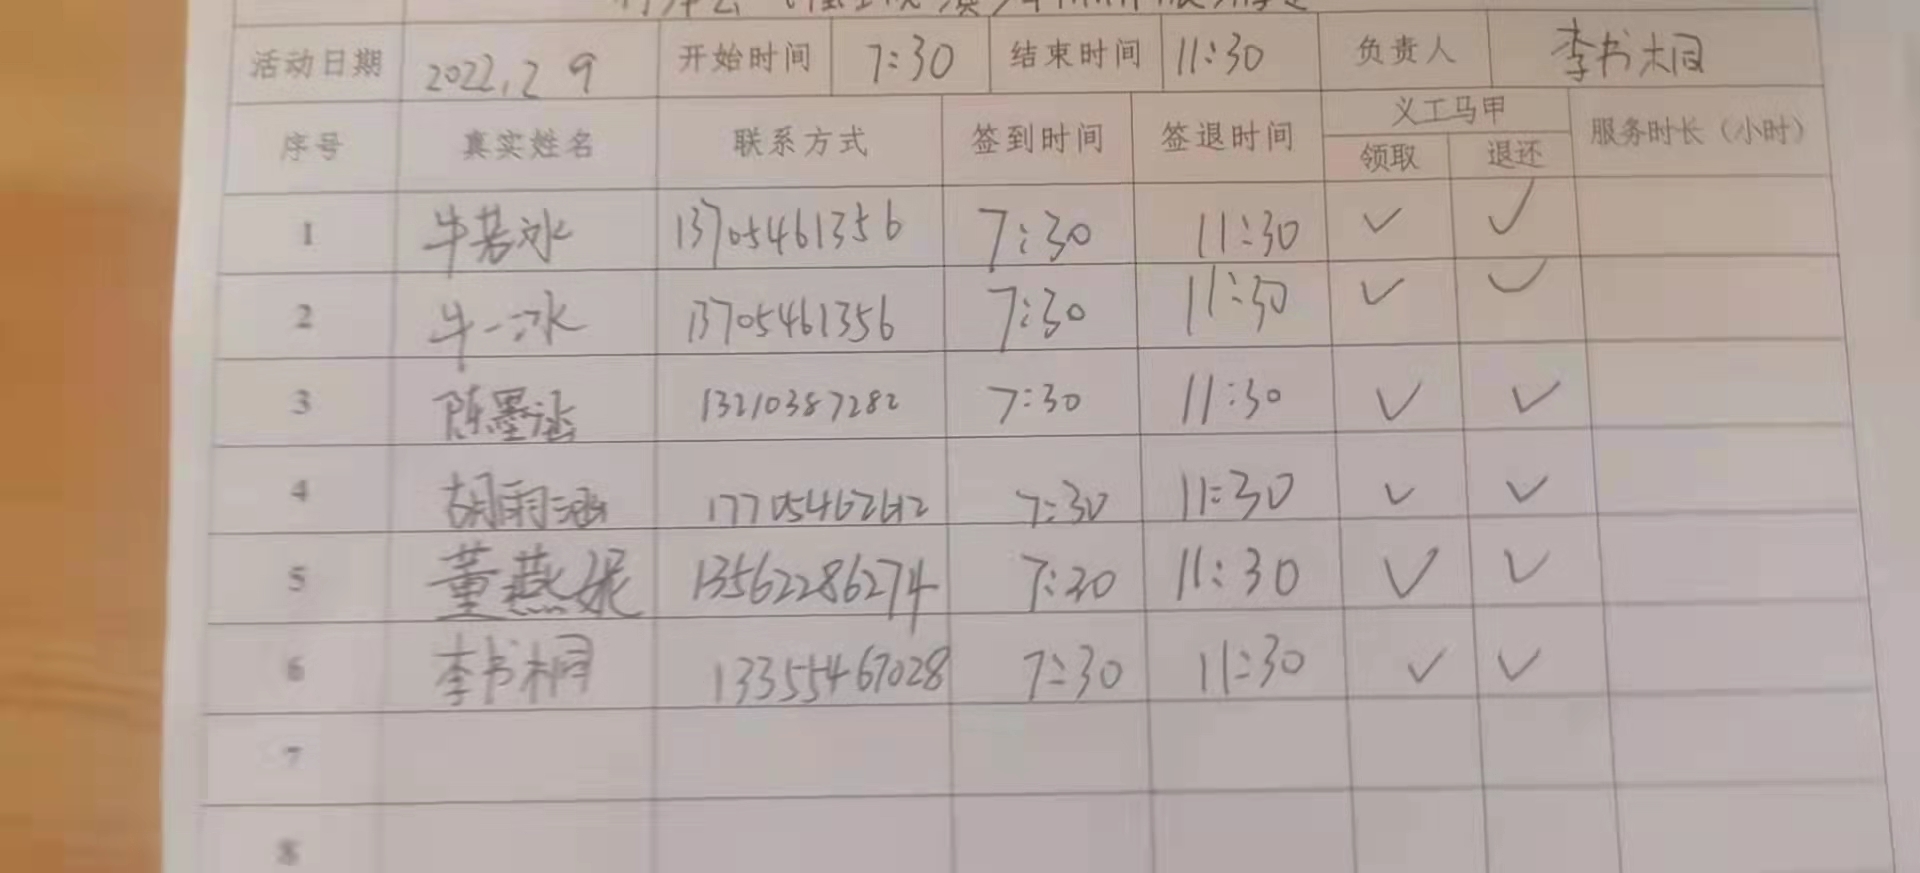 活动日期 2022.2 9 开始时间 7:30 结束时间 11:30 负责人 李书桐
序号 真实姓名 联系方式 签到时间 签退时间 义工马甲 服务时长（小时）
领取 退还
1 牛若冰 13705461356 7:30 11:30 ✓ ✓
2 牛一冰 13705461356 7:30 11:30 ✓ ✓
3 陈墨涵 13210387282 7:30 11:30 ✓ ✓
4 胡雨涵 7:30 11:30 ✓ ✓
5 董燕妮 13562286274 7:30 11:30 ✓ ✓
6 李书桐 13355467028 7:30 11:30 ✓ ✓
7
8